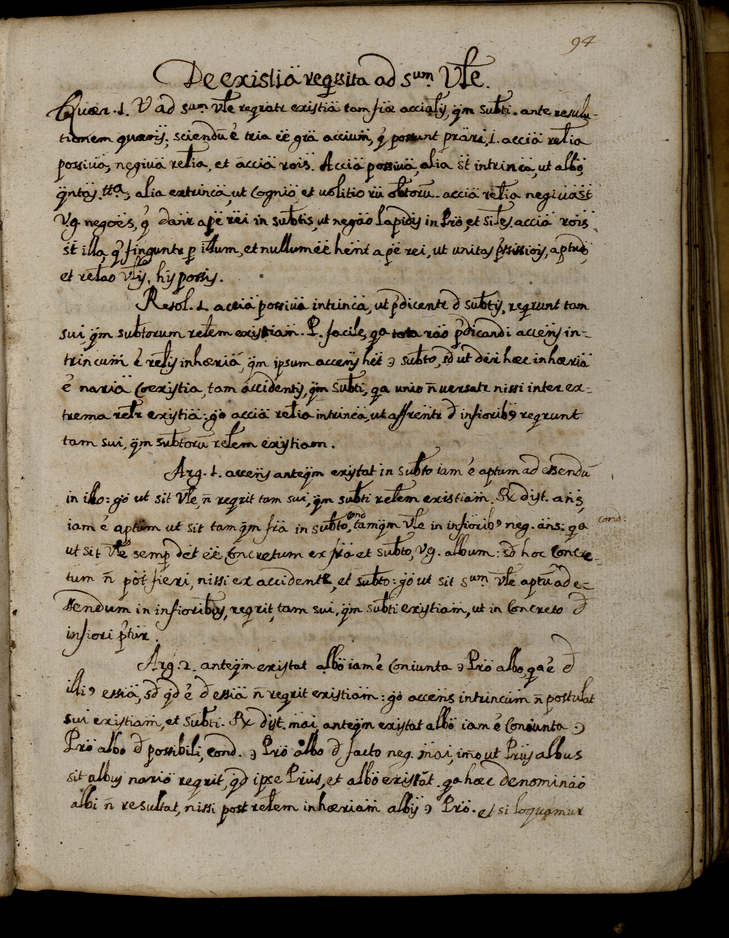 94
De existiã reqsita ad sum Vlẽ.
Quær. 1. V ad sum vlẽ reqratr existiã tam frã accialis, qm subti. ante resolu-
tionem quæois; sciendũ ẽ tria eẽ grã accium, q̃ possunt prãri, 1. acciã relia
possiua, negiua relia, et acciã rois. Acciã possiua, alia st intrinca, ut albo,
qntas, ttã; alia extrinca, ut cognio et uolitio rũ obtorũ. acciã relia negiua st
V.g. negoes, q̃ dantr apẽ rei in subtis, ut negao lapidis in Pro, et siles acciã rois
st illa, q̃ finguntr p illum, et nullum eẽ hent a pẽ rei, ut unitas pssissiois, aptudo,
et relao vlis, his possis.
Resol. 1. acciã possiua intrinca, ut pdicentr d subtis, reqrunt tam
sui qm subtorum relem existiam. P. facile, qa tota rao pdicandi accens in-
trincum ẽ relis inhæria, qm ipsum accens het ɔ subto, sd ut detr hæc inhæria
ẽ naria coexistia, tam accidentis, qm subti, qa unio ñ uersatr nissi inter ex-
trema reltr existia: go acciã relia intrinca, ut affrentr d inferiorib9 reqrunt
tam sui, qm subtorũ relem existiam.
Arg. 1. accens anteqm existat in subto iam ẽ aptum ad essendũ
in illo: go ut sit vlẽ, ñ reqrit tam sui, qm subti relem existiam. Rx dist. ans,
iam ẽ aptum ut sit tamqm frã in subto, cond tamqm vlẽ in inferiorib9 neg. ans: qa cond:
ut sit vlẽ semp det eẽ concretum ex frã et subto, V.g. album: sd hoc concre-
tum ñ pot fieri, nissi ex accidente, et subto: go ut sit sum vlẽ aptũ ad e-
ssendum in inferioribus, reqrit, tam sui, qm subti existiam, ut in concreto d
inferiori ptur.
Arg. 2. anteqm existat albõ iam ẽ coniunta ɔ Pro albo, qa ẽ d
illi9 essia, sd qd ẽ d essia ñ reqrit existiam: go accens intrincum ñ postulat
sui existiam, et subti. Rx dist. mai, anteqm existat albõ iam ẽ coniunta ɔ
Pro albo d possibili, cond. ɔ Pro albo d facto neg. mai, imo, ut Prius albus
sit albus nario reqrit, qd ipse Prius, et albõ existat. qa hæc denominao
albi ñ resultat, nissi post relem inhæriam albis ɔ Pro. et si loquamur